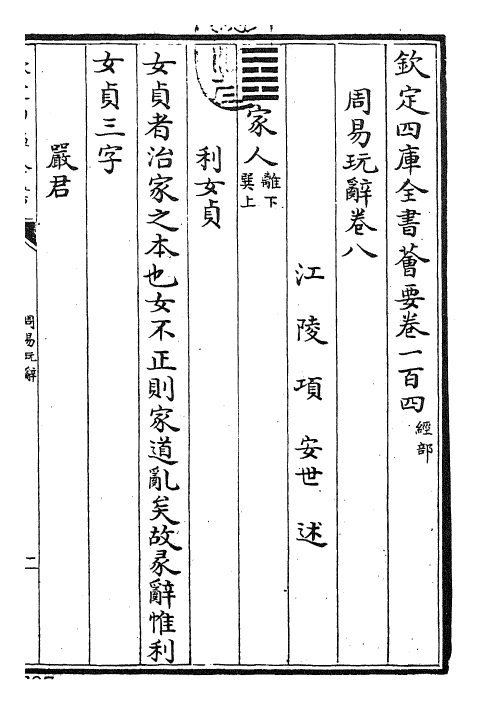 欽定四庫全書薈要卷一百四 經部
周易玩辭卷八
江陵項安世述
䷤家人 離下巽上
利女貞
女貞者治家之本也女不正則家道亂矣故彖辭惟利
女貞三字
嚴君
周易玩辭